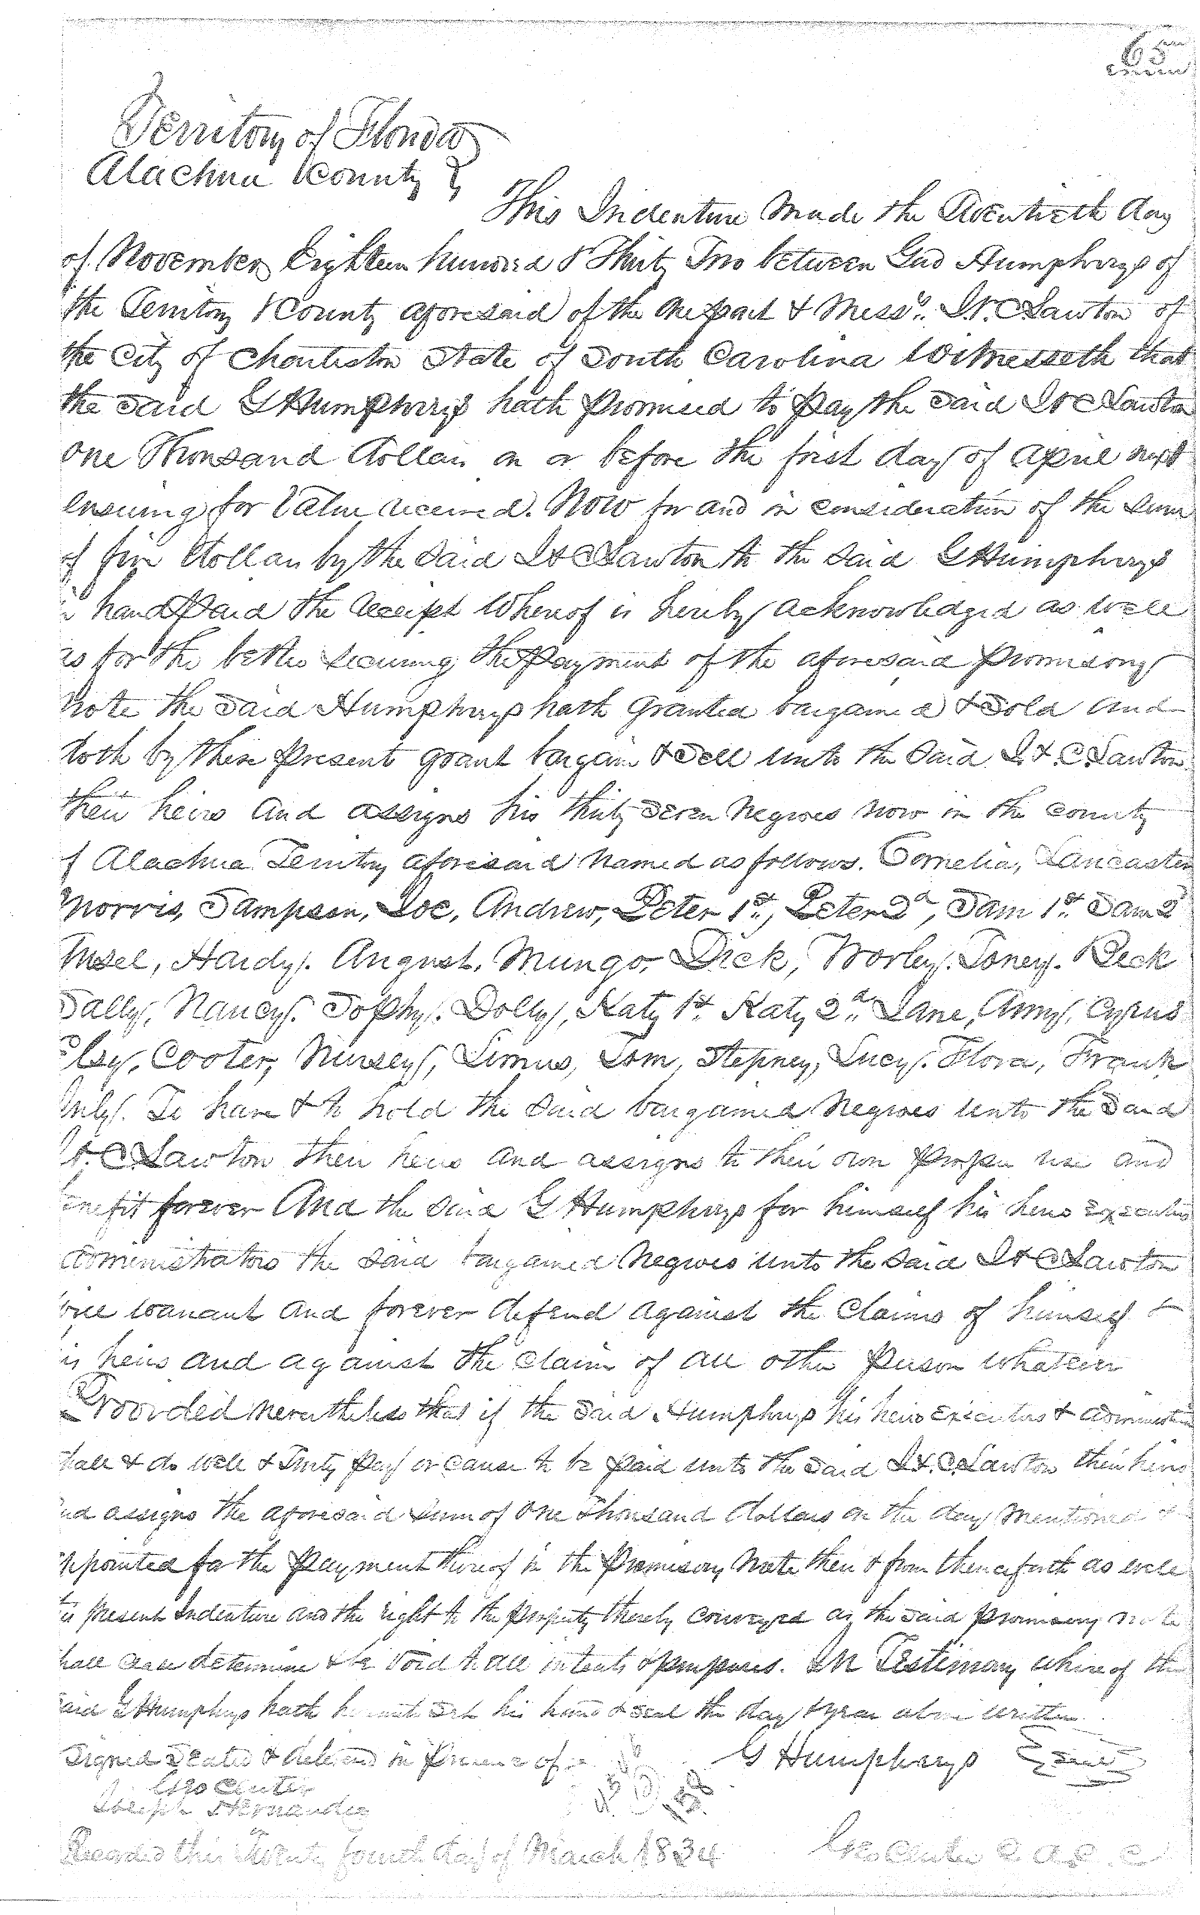 65
Territory of Florida
Alachua County }
This Indenture Made the Twentieth day
of November Eighteen hundred & Thirty Two between Gad Humphreys of
the Territory & County aforesaid of the one part & Messrs. I & C Lawton of
the City of Charleston State of South Carolina Witnesseth that
the said G Humphreys hath promised to pay the said I & C Lawton
one Thousand dollars on or before the first day of April next
ensuing for Value received. Now for and in consideration of the sum
of five dollars by the said I & C Lawton to the said G Humphreys
in hand paid the receipt whereof is hereby acknowledged as well
as for the better securing the payment of the aforesaid promisory
note the said Humphreys hath granted bargained & sold and
doth by these present grant bargain & sell unto the said I. & C. Lawton
their heirs and assigns his thirty seven negroes now in the county
of Alachua Territory aforesaid named as follows. Cornelia, Lancaster
Morris, Sampson, Joe, Andrew, Peter 1st, Peter 2d, Sam 1st. Sam 2
Hardy. August. Mungo, Dick, Worley. Toney. Beck
Sally, Nancy. Sophy. Dolly, Katy 1st. Katy 2d. Jane, Amy, Cyrus
Elsy, Cooter, Nursey, Limus, Tom, Stepney, Lucy. Flora, Frank
July. To have & to hold the said bargained negroes unto the said
I. & C. Lawton their heirs and assigns to their own proper use and
benefit forever And the said G Humphreys for himself his heirs executors
administrators the said bargained negroes unto the said I & C Lawton
will warrant and forever defend against the claims of himself &
his heirs and against the claim of all other person whatever
Provided nevertheless that if the said Humphreys his heirs executors & administrators
shall & do well & truly pay or cause to be paid unto the said I. & C. Lawton their heirs
and assigns the aforesaid sum of one thousand dollars on the day mentioned &
appointed for the payment thereof in the promisory note then & from thenceforth as well
this present Indenture and the right to the property thereby conveyed as the said promisory note
shall cease determine & be void to all intents & purposes. In Testimony whereof the
said G Humphreys hath hereunto set his hand & seal the day & year above written.
Signed Sealed & delivered in presence of
G Humphreys Seal
Geo Center
Joseph Hernandez
Recorded this Twenty fourth day of March 1834
Geo Center C A C. C